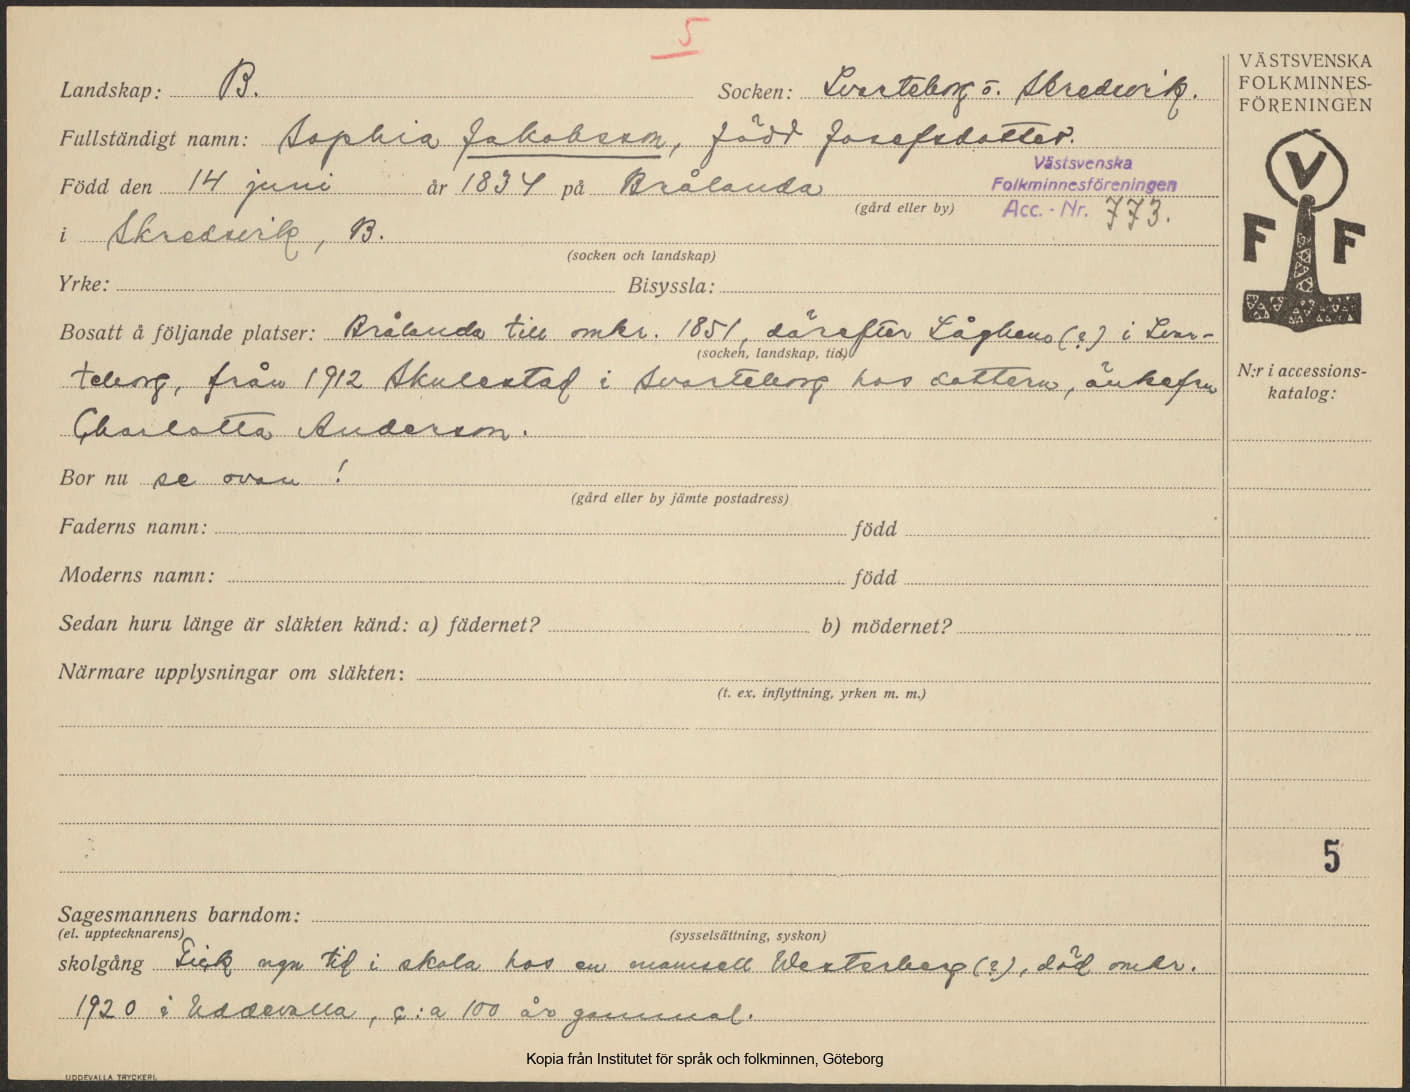 5
Landskap: B. Socken: Svarteborg o. Skredsvik.
Fullständigt namn: Sophia Jakobsson, född Josefsdotter.
Född den 14 juni år 1834 på Brålanda
(gård eller by)
Västsvenska
Folkminnesföreningen
Acc. - Nr. 773.
i Skredsvik, B.
(socken och landskap)
Yrke: Bisyssla:
Bosatt å följande platser: Brålanda till omkr. 1851, därefter Låghens (?) i Svar-
(socken, landskap, tid)
teborg, från 1912 Skulestad i Svarteborg hos dottern, änkefru
Charlotta Anderson.
Bor nu se ovan!
(gård eller by jämte postadress)
Faderns namn: född
Moderns namn: född
Sedan huru länge är släkten känd: a) fädernet? b) mödernet?
Närmare upplysningar om släkten:
(t. ex. inflyttning, yrken m. m.)
Sagesmannens barndom:
(el. upptecknarens) (sysselsättning, syskon)
skolgång Gick ngn tid i skola hos en mamsell Westerberg (?), död omkr.
1920 i Uddevalla, c:a 100 år gammal.
VÄSTSVENSKA
FOLKMINNES-
FÖRENINGEN
V
F F
N:r i accessions-
katalog:
5
Kopia från Institutet för språk och folkminnen, Göteborg
UDDEVALLA TRYCKERI.